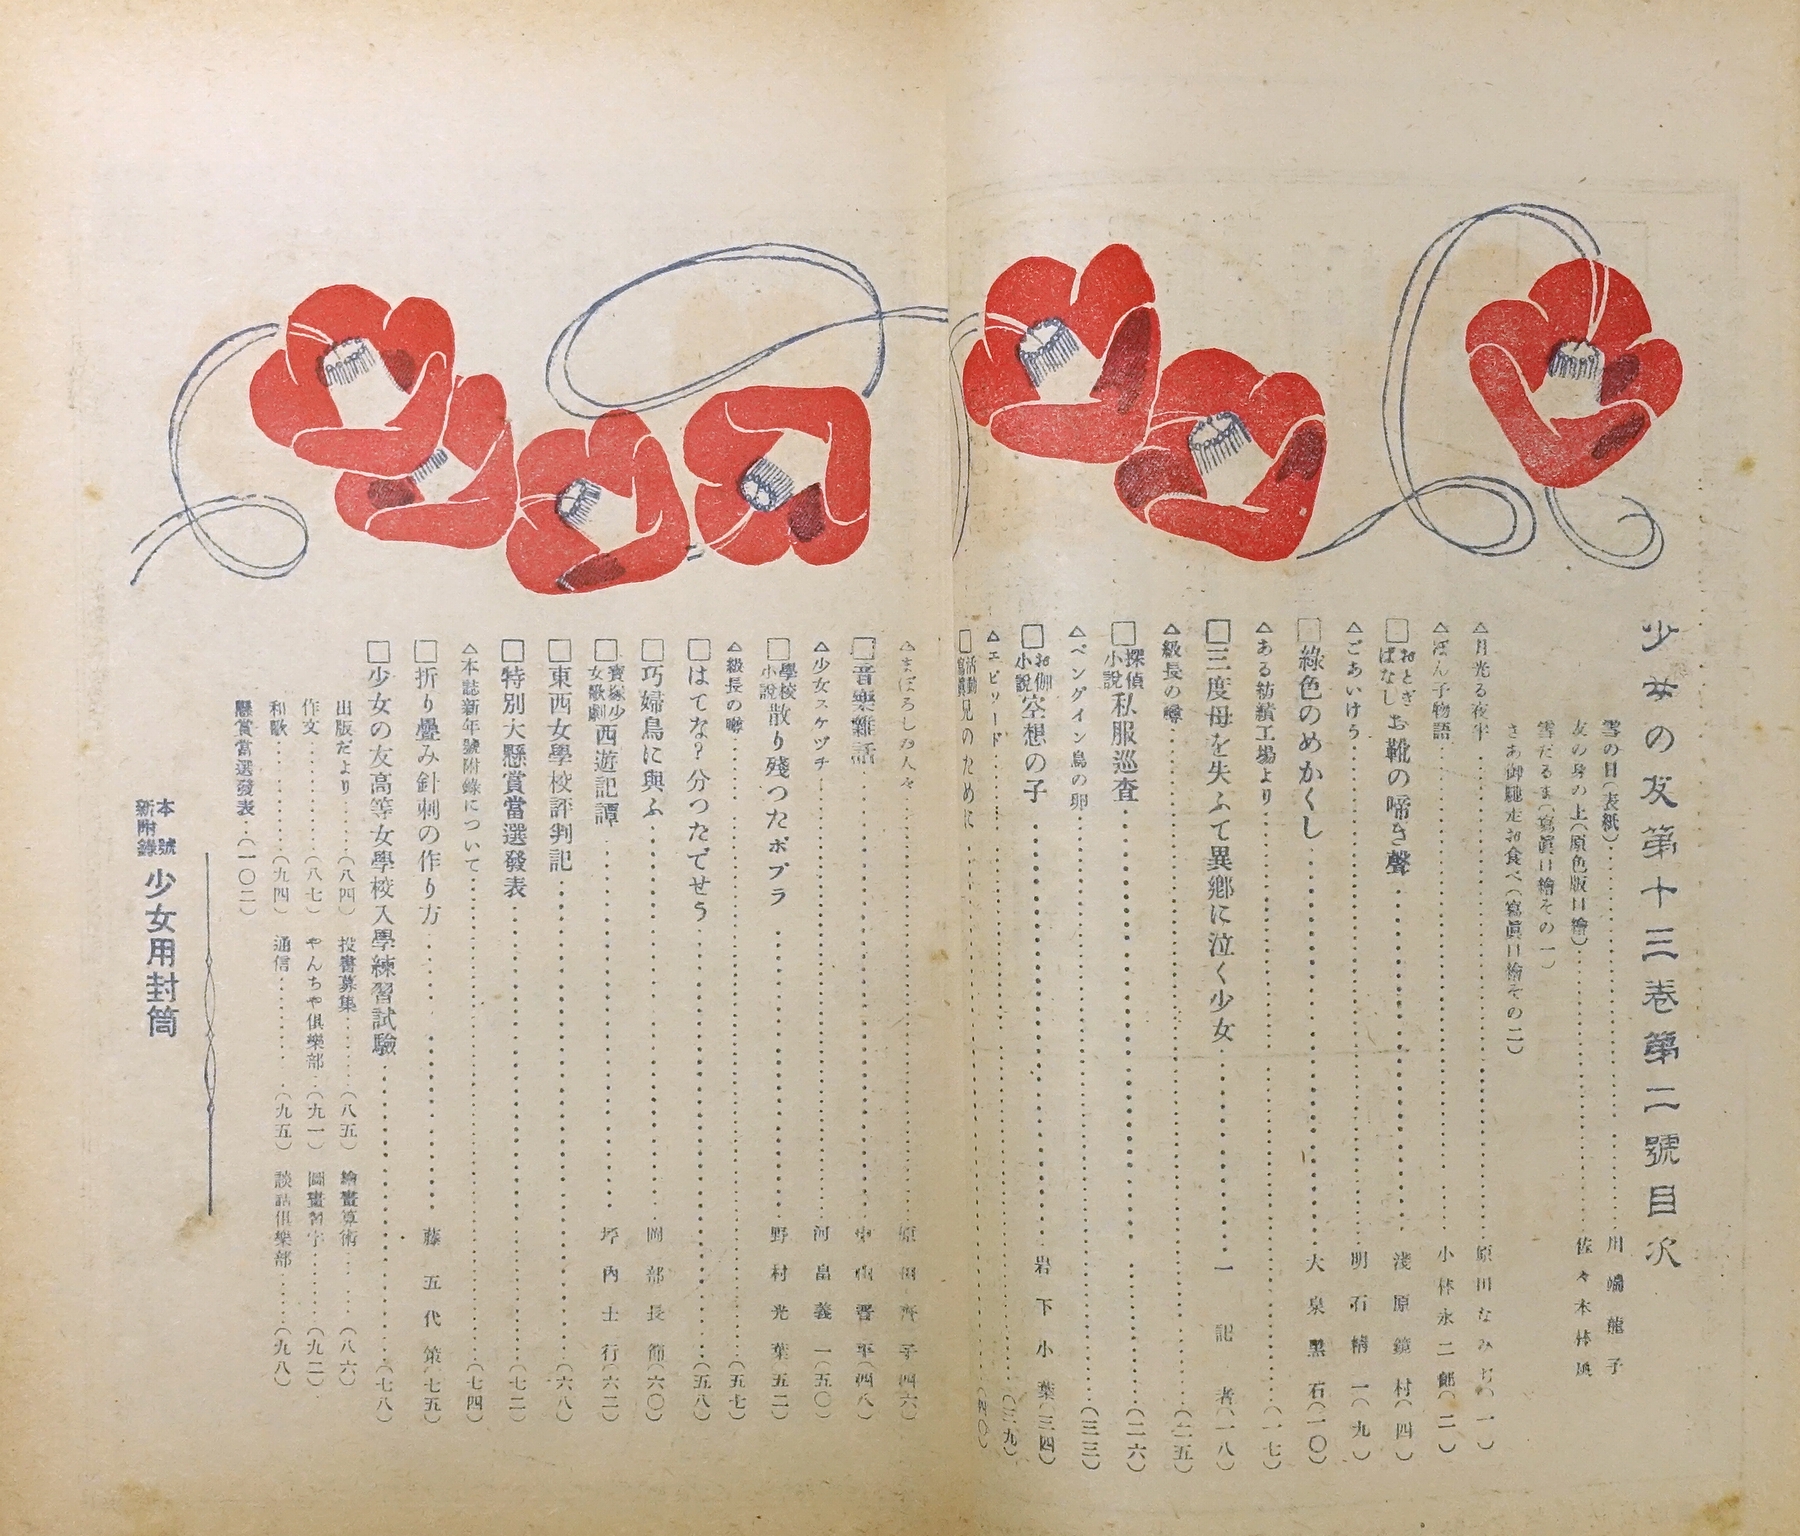 少女の友第十三卷第二號目次
雪の日(表紙)……川端龍子
友の身の上(原色版口繪)……佐々木林風
雪だるま(寫眞口繪その一)
さあ御馳走お食べ(寫眞口繪その二)
△月光る夜半……原田なみぢ(一)
△ぽん子物語……小林永二郎(二)
□おとぎばなし お靴の啼き聲……淺原鏡村(四)
△ごあいけう……明石精一(九)
□綠色のめかくし……大泉黑石(一〇)
△ある紡績工場より……(一七)
□三度母を失ふて異鄕に泣く少女……一記者(一八)
△級長の噂……(二五)
□探偵小說 私服巡査……(二六)
△ペングイン鳥の卵……(三三)
□お伽小說 空想の子……岩下小葉(三四)
△エピソード……(三九)
□活動寫眞 兒のために……(四〇)
△まぼろしの人々……原田齊子(四六)
□音樂雜話……中山晋平(四八)
△少女スケツチ……河畠義一(五〇)
□學校小說 散り殘つたポプラ……野村光葉(五二)
△級長の噂……(五七)
□はてな?分つたでせう……(五八)
□巧婦鳥に與ふ……岡部長節(六〇)
□寶塚少女歌劇 西遊記譚……坪內士行(六二)
□東西女學校評判記……(六八)
□特別大懸賞當選發表……(七二)
△本誌新年號附錄について……(七四)
□折り疊み針刺の作り方……藤五代策(七五)
□少女の友高等女學校入學練習試驗……(七八)
出版だより……(八四) 投書募集……(八五) 繪畫算術……(八六)
作文……(八七) やんちや俱樂部……(九一) 圖畫習字……(九二)
和歌……(九四) 通信……(九五) 談話俱樂部……(九八)
懸賞當選發表……(一〇二)
本號新附錄 少女用封筒